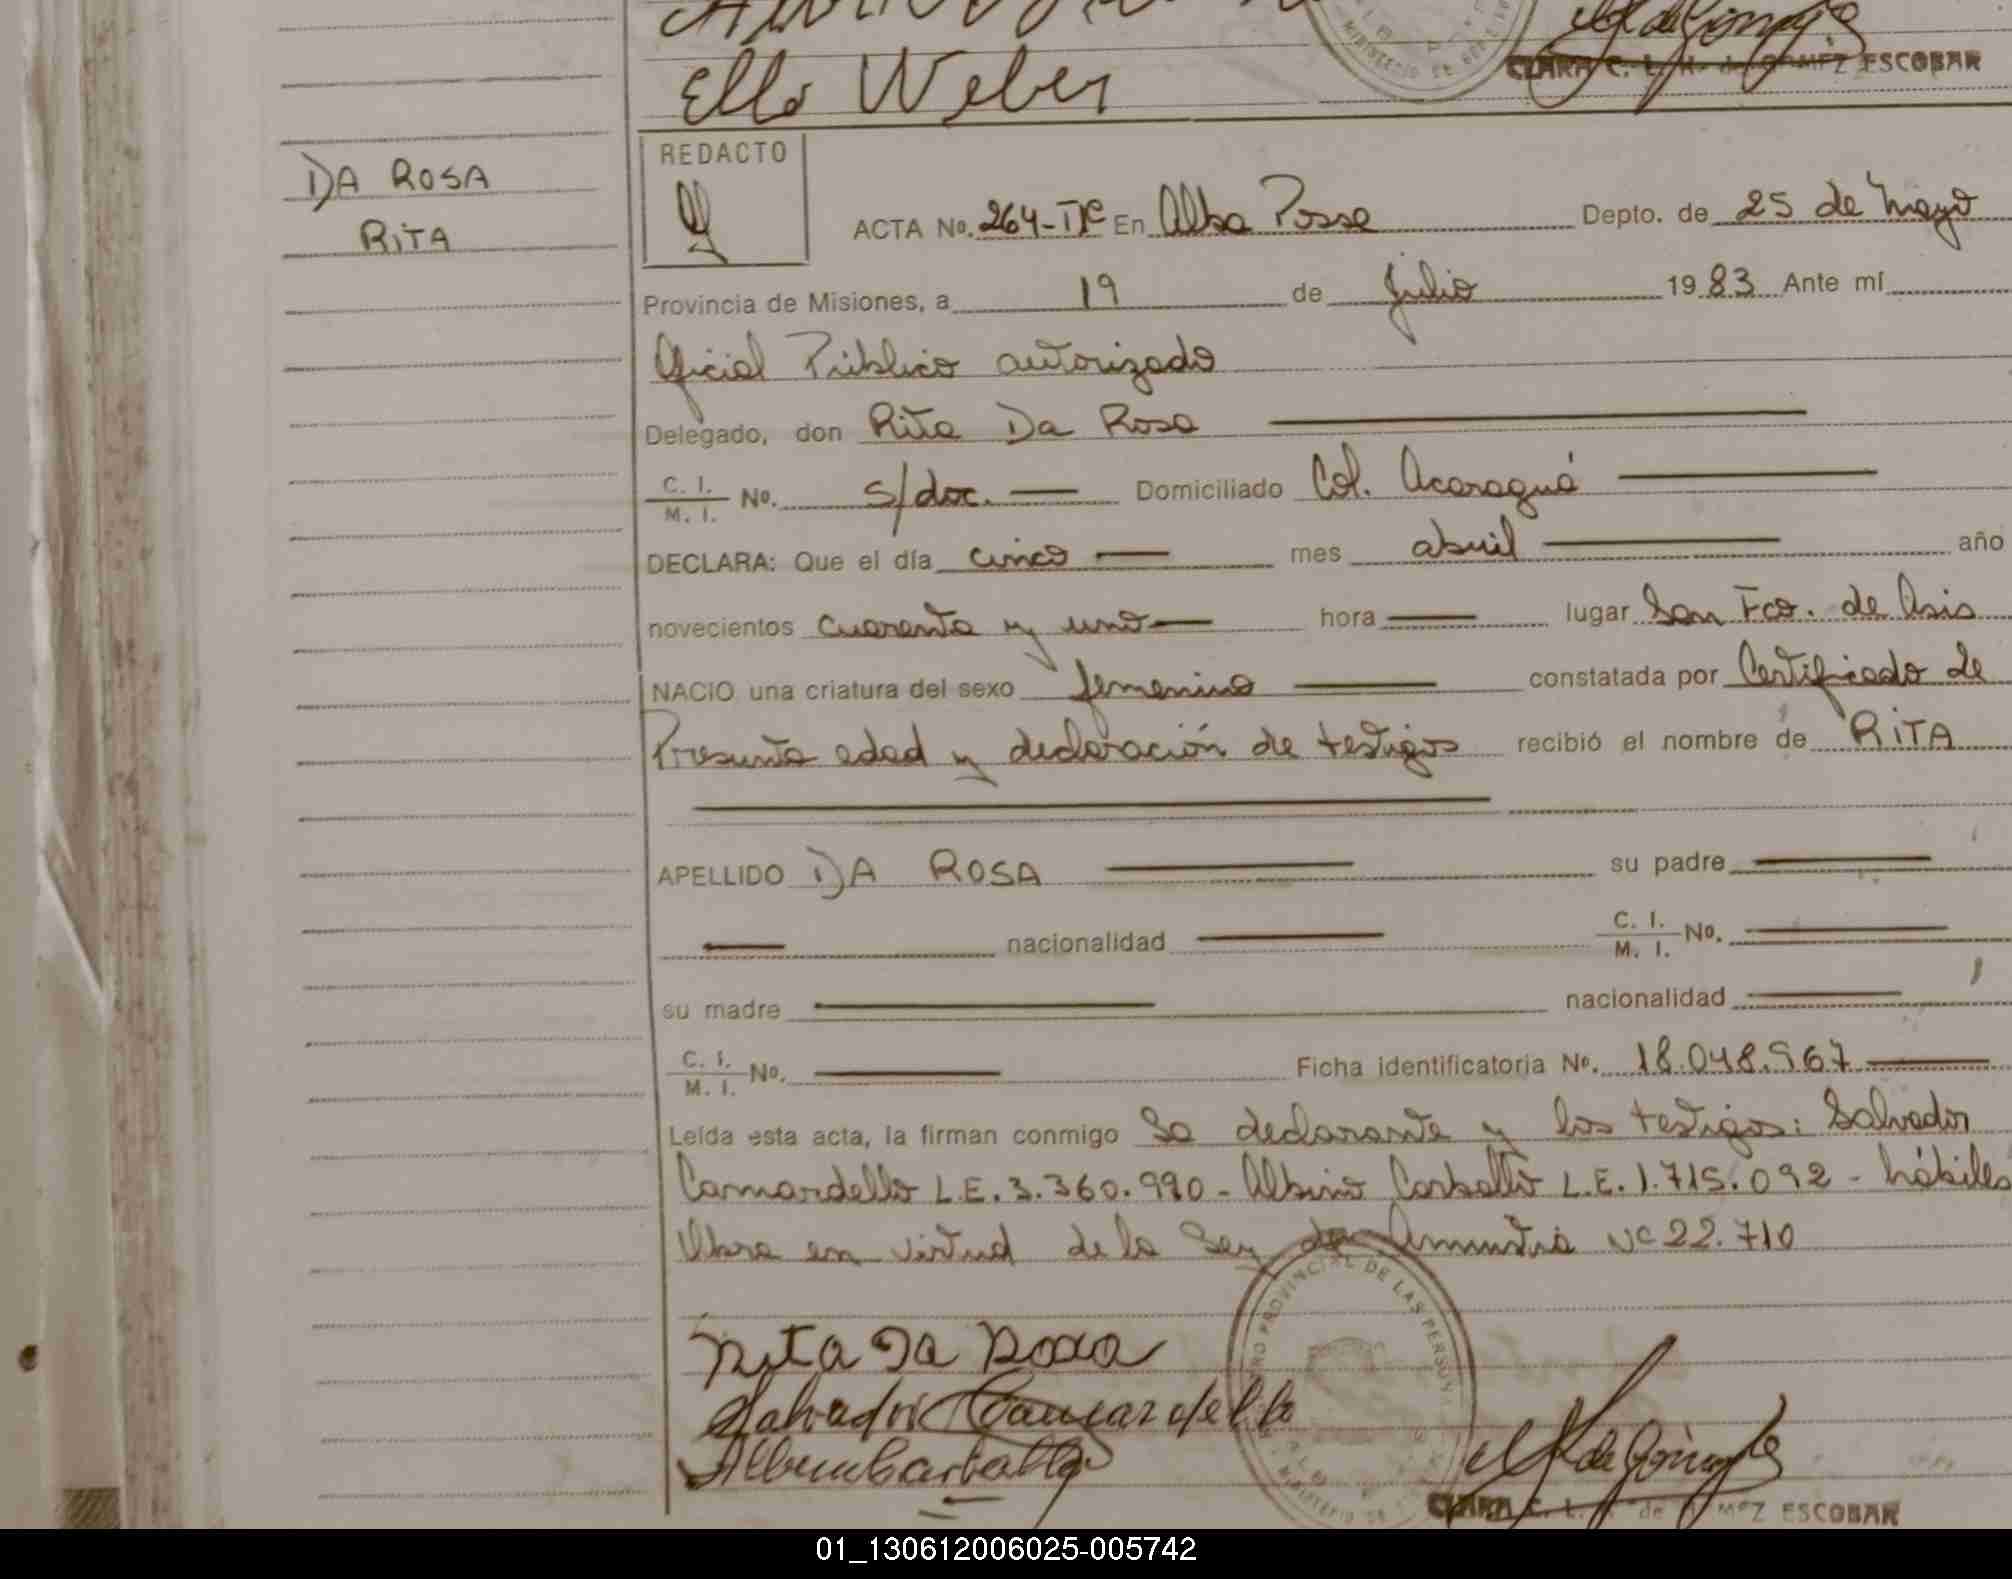 Ello Weber
CLARA C. L. N. de GOMEZ ESCOBAR
DA ROSA
RITA
REDACTO
ACTA No. 264-Tº En Alba Posse Depto. de 25 de Mayo
Provincia de Misiones, a 19 de Julio 1983 Ante mí
Oficial Público autorizado
Delegado, don Rita Da Rosa
C. I. / M. I. No. s/doc. Domiciliado Col. Acaraguá
DECLARA: Que el día cinco mes abril año
novecientos cuarenta y uno hora lugar San Fco. de Asis
NACIO una criatura del sexo femenino constatada por Certificado de
Presunta edad y declaración de testigos recibió el nombre de RITA
APELLIDO DA ROSA su padre
nacionalidad C. I. / M. I. No.
su madre nacionalidad
C. I. / M. I. No. Ficha identificatoria No. 18.048.967
Leída esta acta, la firman conmigo la declarante y los testigos: Salvador
Camardello L.E. 3.360.990 - Albino Carballo L.E. 1.715.092 - hábiles
Labra en virtud de la Ley de Amnistia Nº 22.710
Rita Da Rosa
Salvador Camardello
Albino Carballo
CLARA C. L. N. de GOMEZ ESCOBAR
01_130612006025-005742